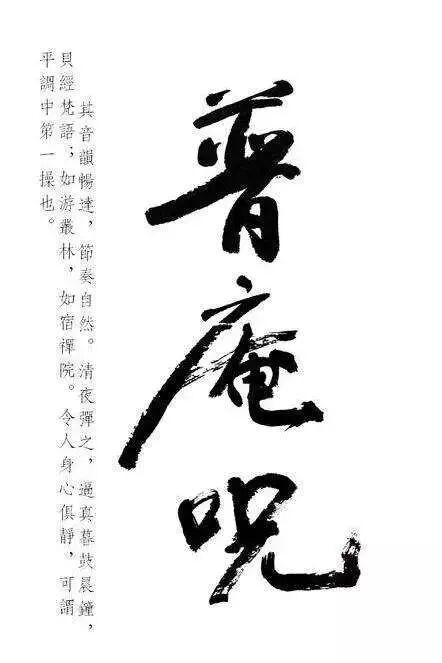 普庵呪
其音韻暢達，節奏自然。清夜彈之，逼真暮鼓晨鐘，
貝經梵語；如游叢林，如宿禪院。令人身心俱靜，可謂
平調中第一操也。